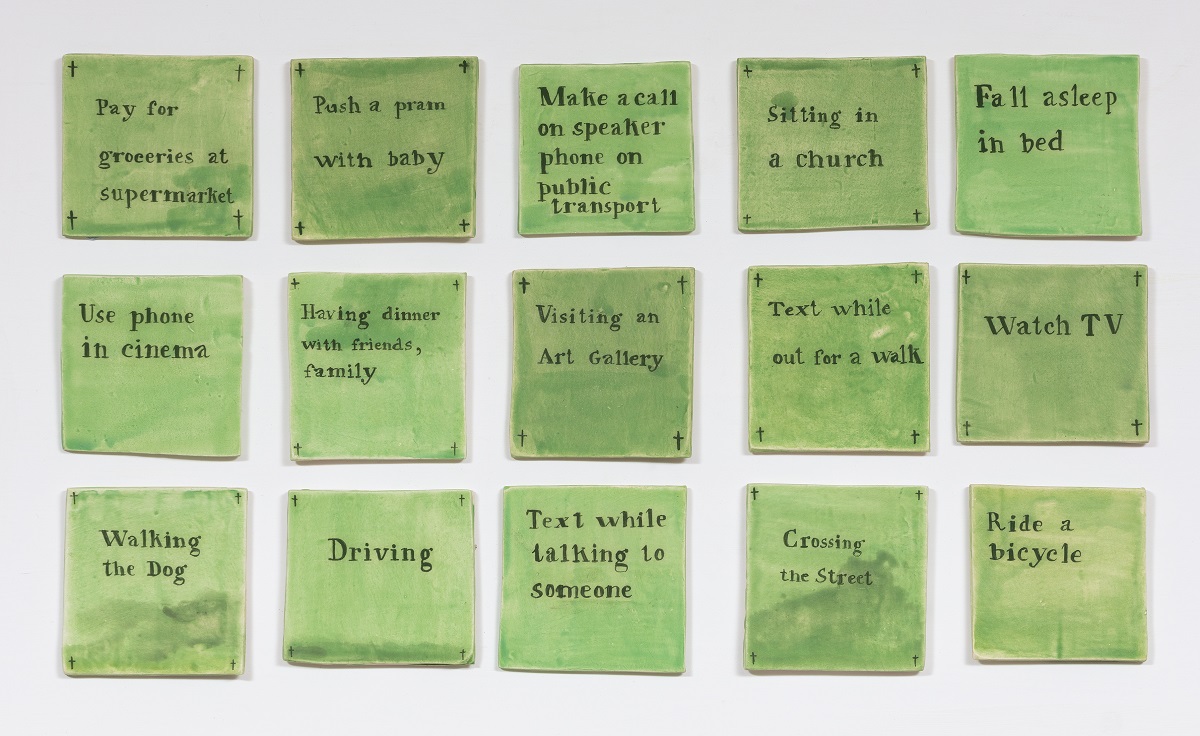 Pay for
groceries at
supermarket
Push a pram
with baby
Make a call
on speaker
phone on
public
transport
Sitting in
a church
Fall asleep
in bed
Use phone
in cinema
Having dinner
with friends,
family
Visiting an
Art Gallery
Text while
out for a walk
Watch TV
Walking
the Dog
Driving
Text while
talking to
someone
Crossing
the Street
Ride a
bicycle